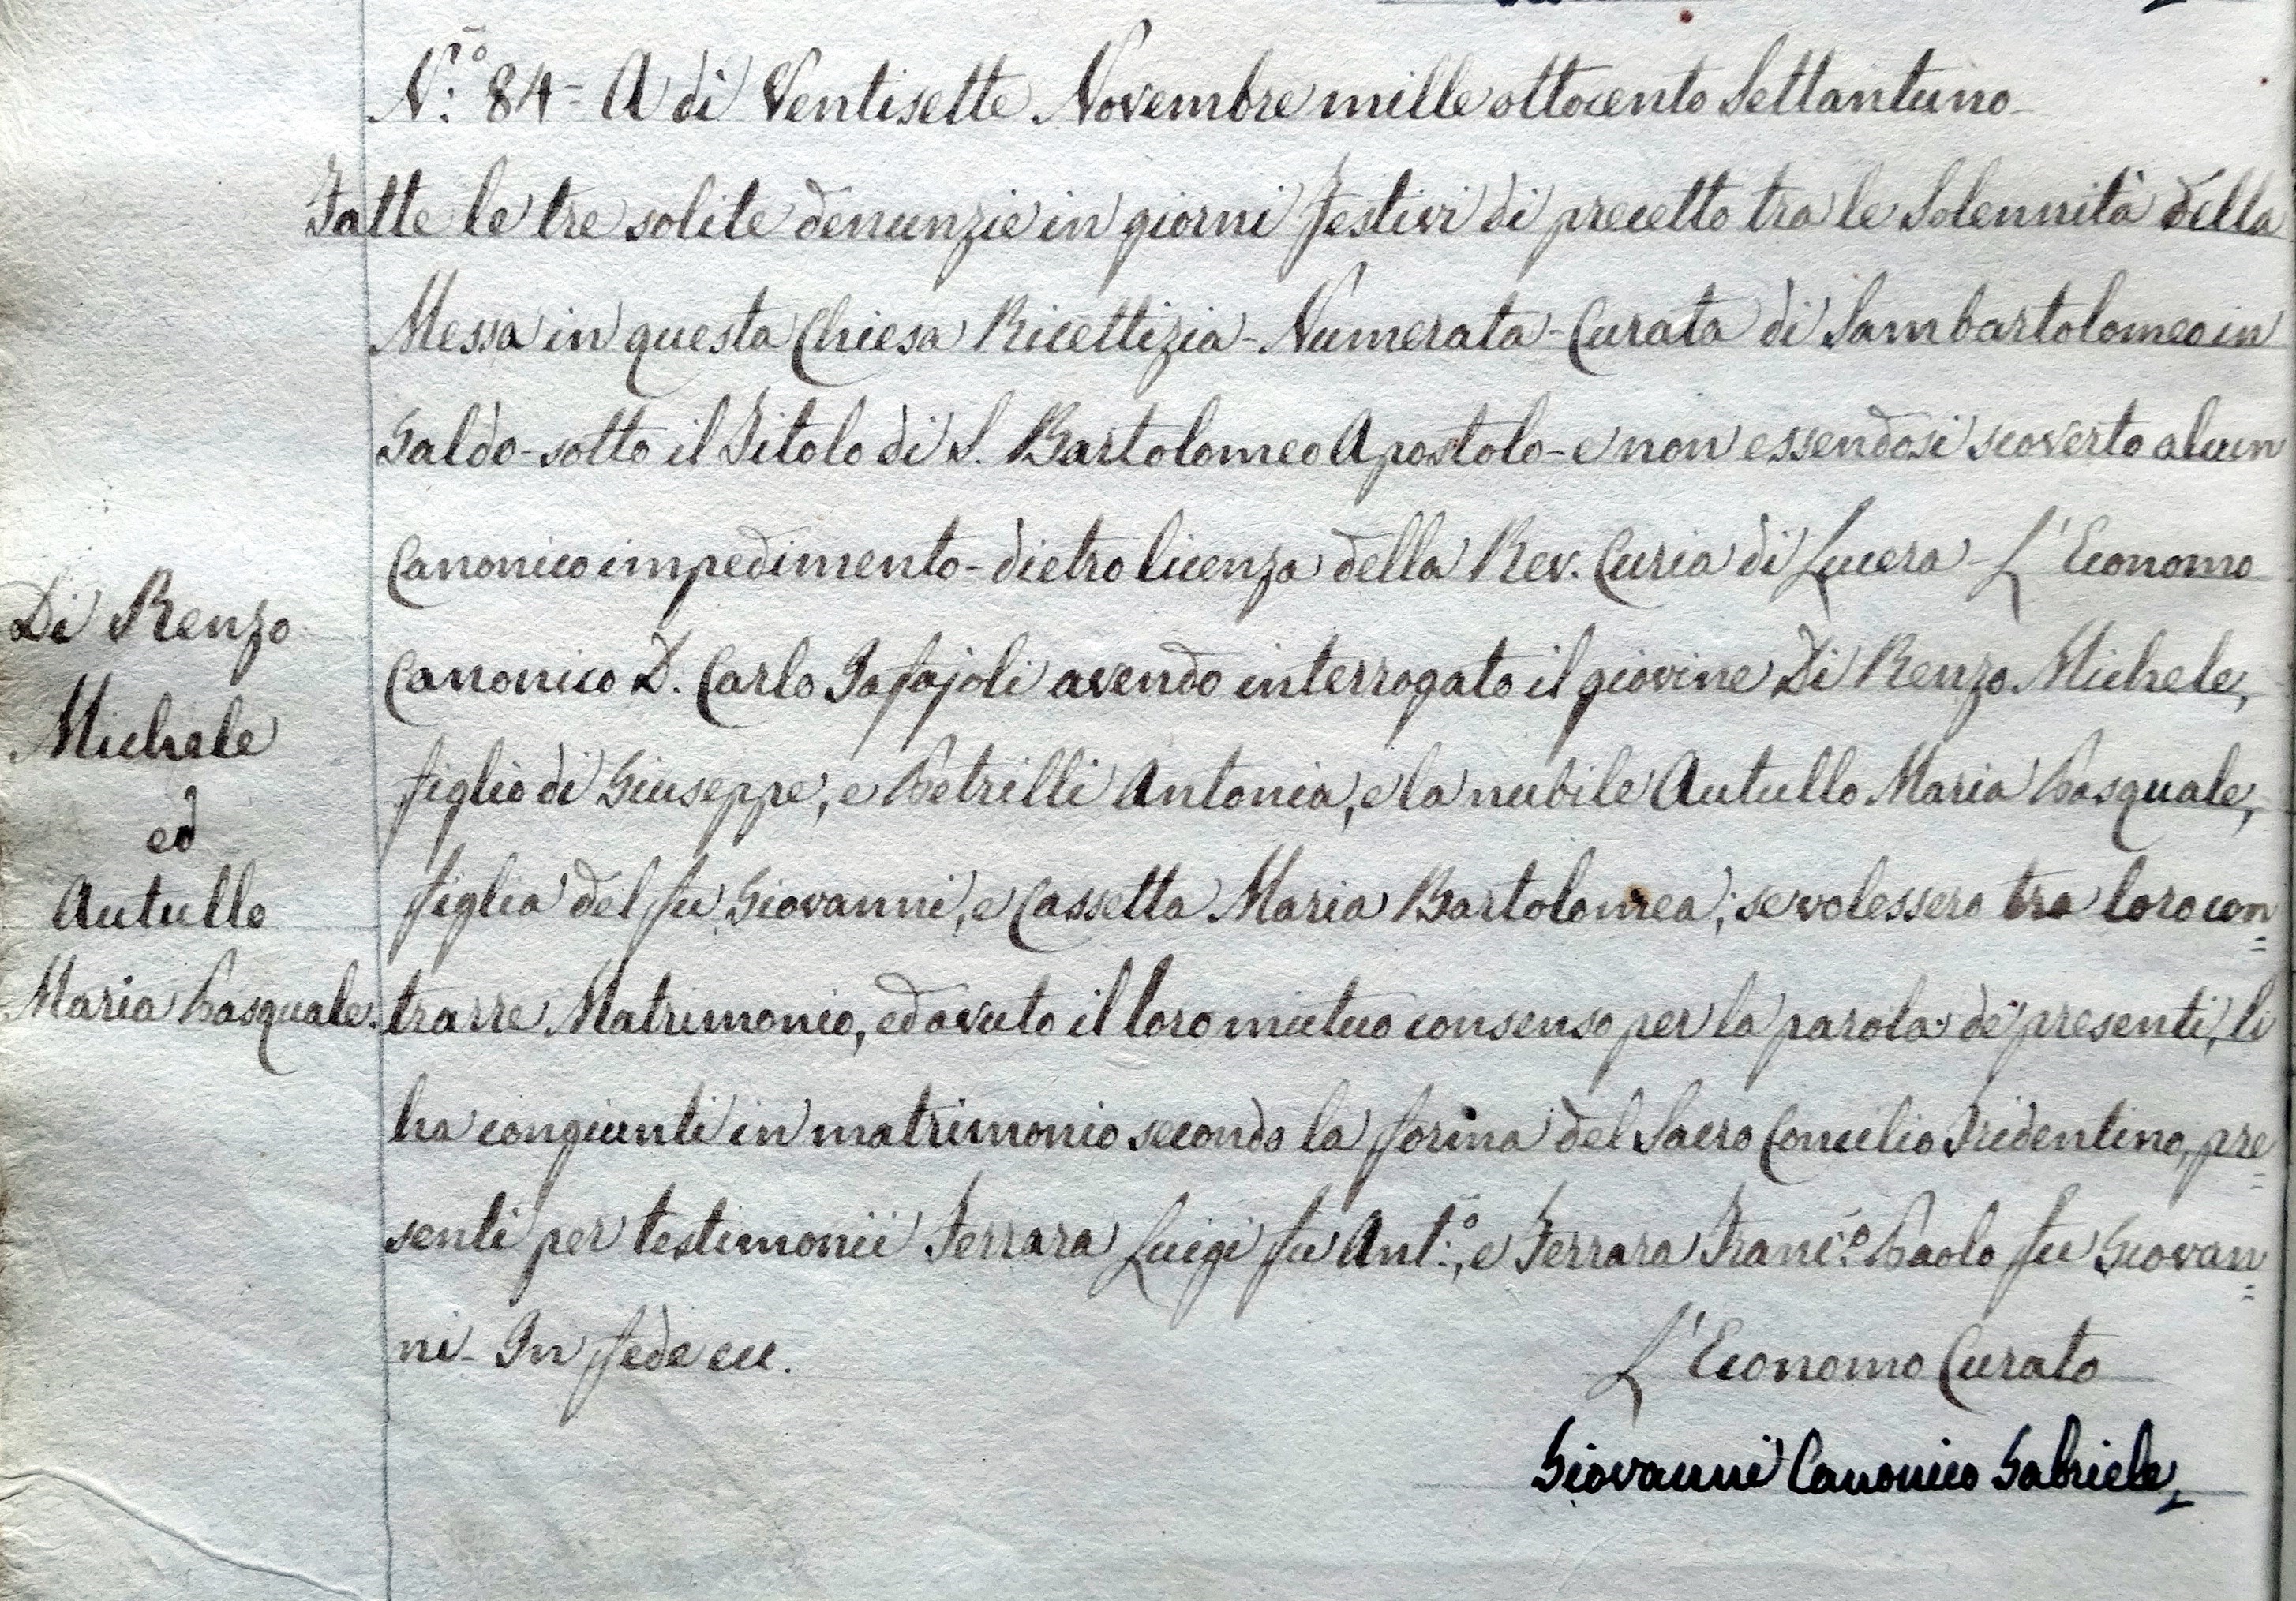 N.º 84 = A di Ventisette Novembre mille ottocento Settantuno
Fatte le tre solite denunzie in giorni festivi di precetto tra le Solennità della
Messa in questa Chiesa Ricettizia - Numerata - Curata di Sambartolomeo in
Galdo - sotto il Titolo di S. Bartolomeo Apostolo - e non essendosi scoverto alcun
Canonico impedimento - dietro licenza della Rev. Curia di Lucera - L'Economo
Canonico D. Carlo avendo interrogato il giovine Di Renzo Michele,
figlio di Giuseppe, e Petrilli Antonia, e la nubile Autullo Maria Pasquale,
figlia del fu Giovanni, e Cassetta Maria Bartolomea; se volessero tra loro con=
trarre Matrimonio, ed avuto il loro mutuo consenso per la parola de' presenti, li
ha congiunti in matrimonio secondo la forma del Sacro Concilio Tridentino, pre=
senti per testimonii Ferrara Luigi fu Ant.º, e Ferrara Franc.º Paolo fu Giovan=
ni - In fede ecc.
L'Economo Curato
Giovanni Canonico Gabriele
Di Renzo
Michele
ed
Autullo
Maria Pasquale.